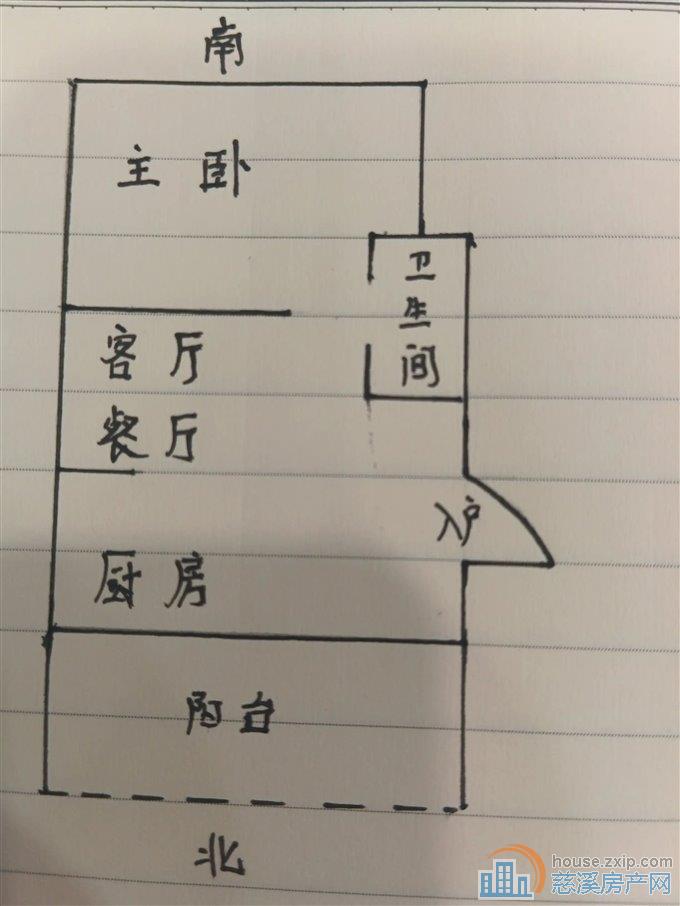 南
主卧
卫生间
客厅
餐厅
入户
厨房
阳台
北
house.zxip.com
慈溪房产网